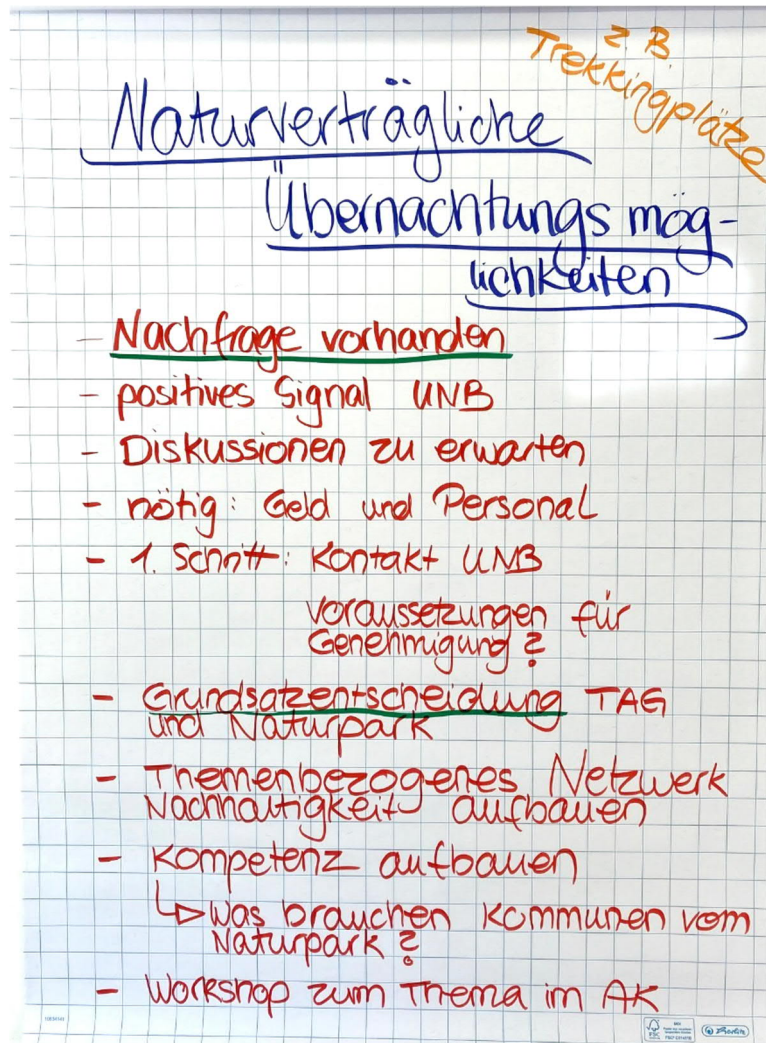 z. B.
Trekkingplätze
Naturverträgliche
Übernachtungsmög-
lichkeiten
- Nachfrage vorhanden
- positives Signal UNB
- Diskussionen zu erwarten
- nötig: Geld und Personal
- 1. Schritt: Kontakt UNB
Voraussetzungen für
Genehmigung?
- Grundsatzentscheidung TAG
und Naturpark
- Themenbezogenes Netzwerk
Nachhaltigkeit aufbauen
- Kompetenz aufbauen
↳ Was brauchen Kommunen vom
Naturpark?
- Workshop zum Thema im AK
FSC
MIX
Berlin